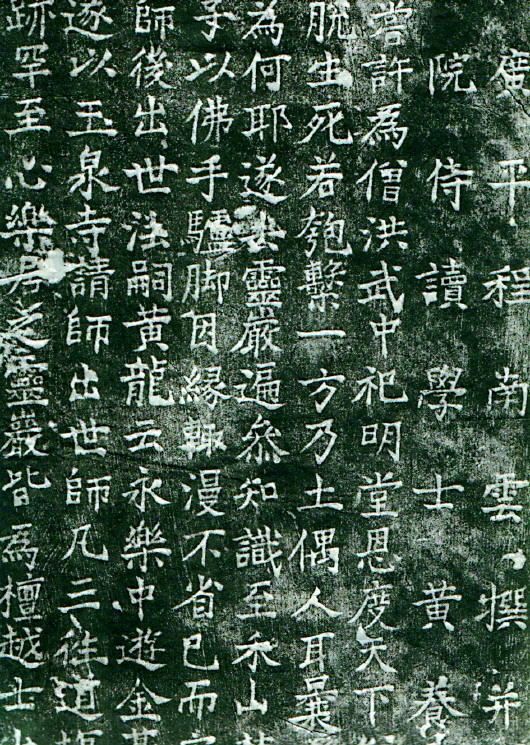 廣平程南雲撰并
院侍讀學士黃養
嘗許為僧洪武中祀明堂恩度天下
脫生死若匏繫一方乃土偶人耳
為何耶遂去靈嚴遍叅知識至禾山
子以佛手驢脚因緣輙漫不省已而
師後出世法嗣黃龍云永樂中遊金
遂以玉泉寺請師出世師凡三徃道
跡罕至心樂居之靈巖皆為檀越士